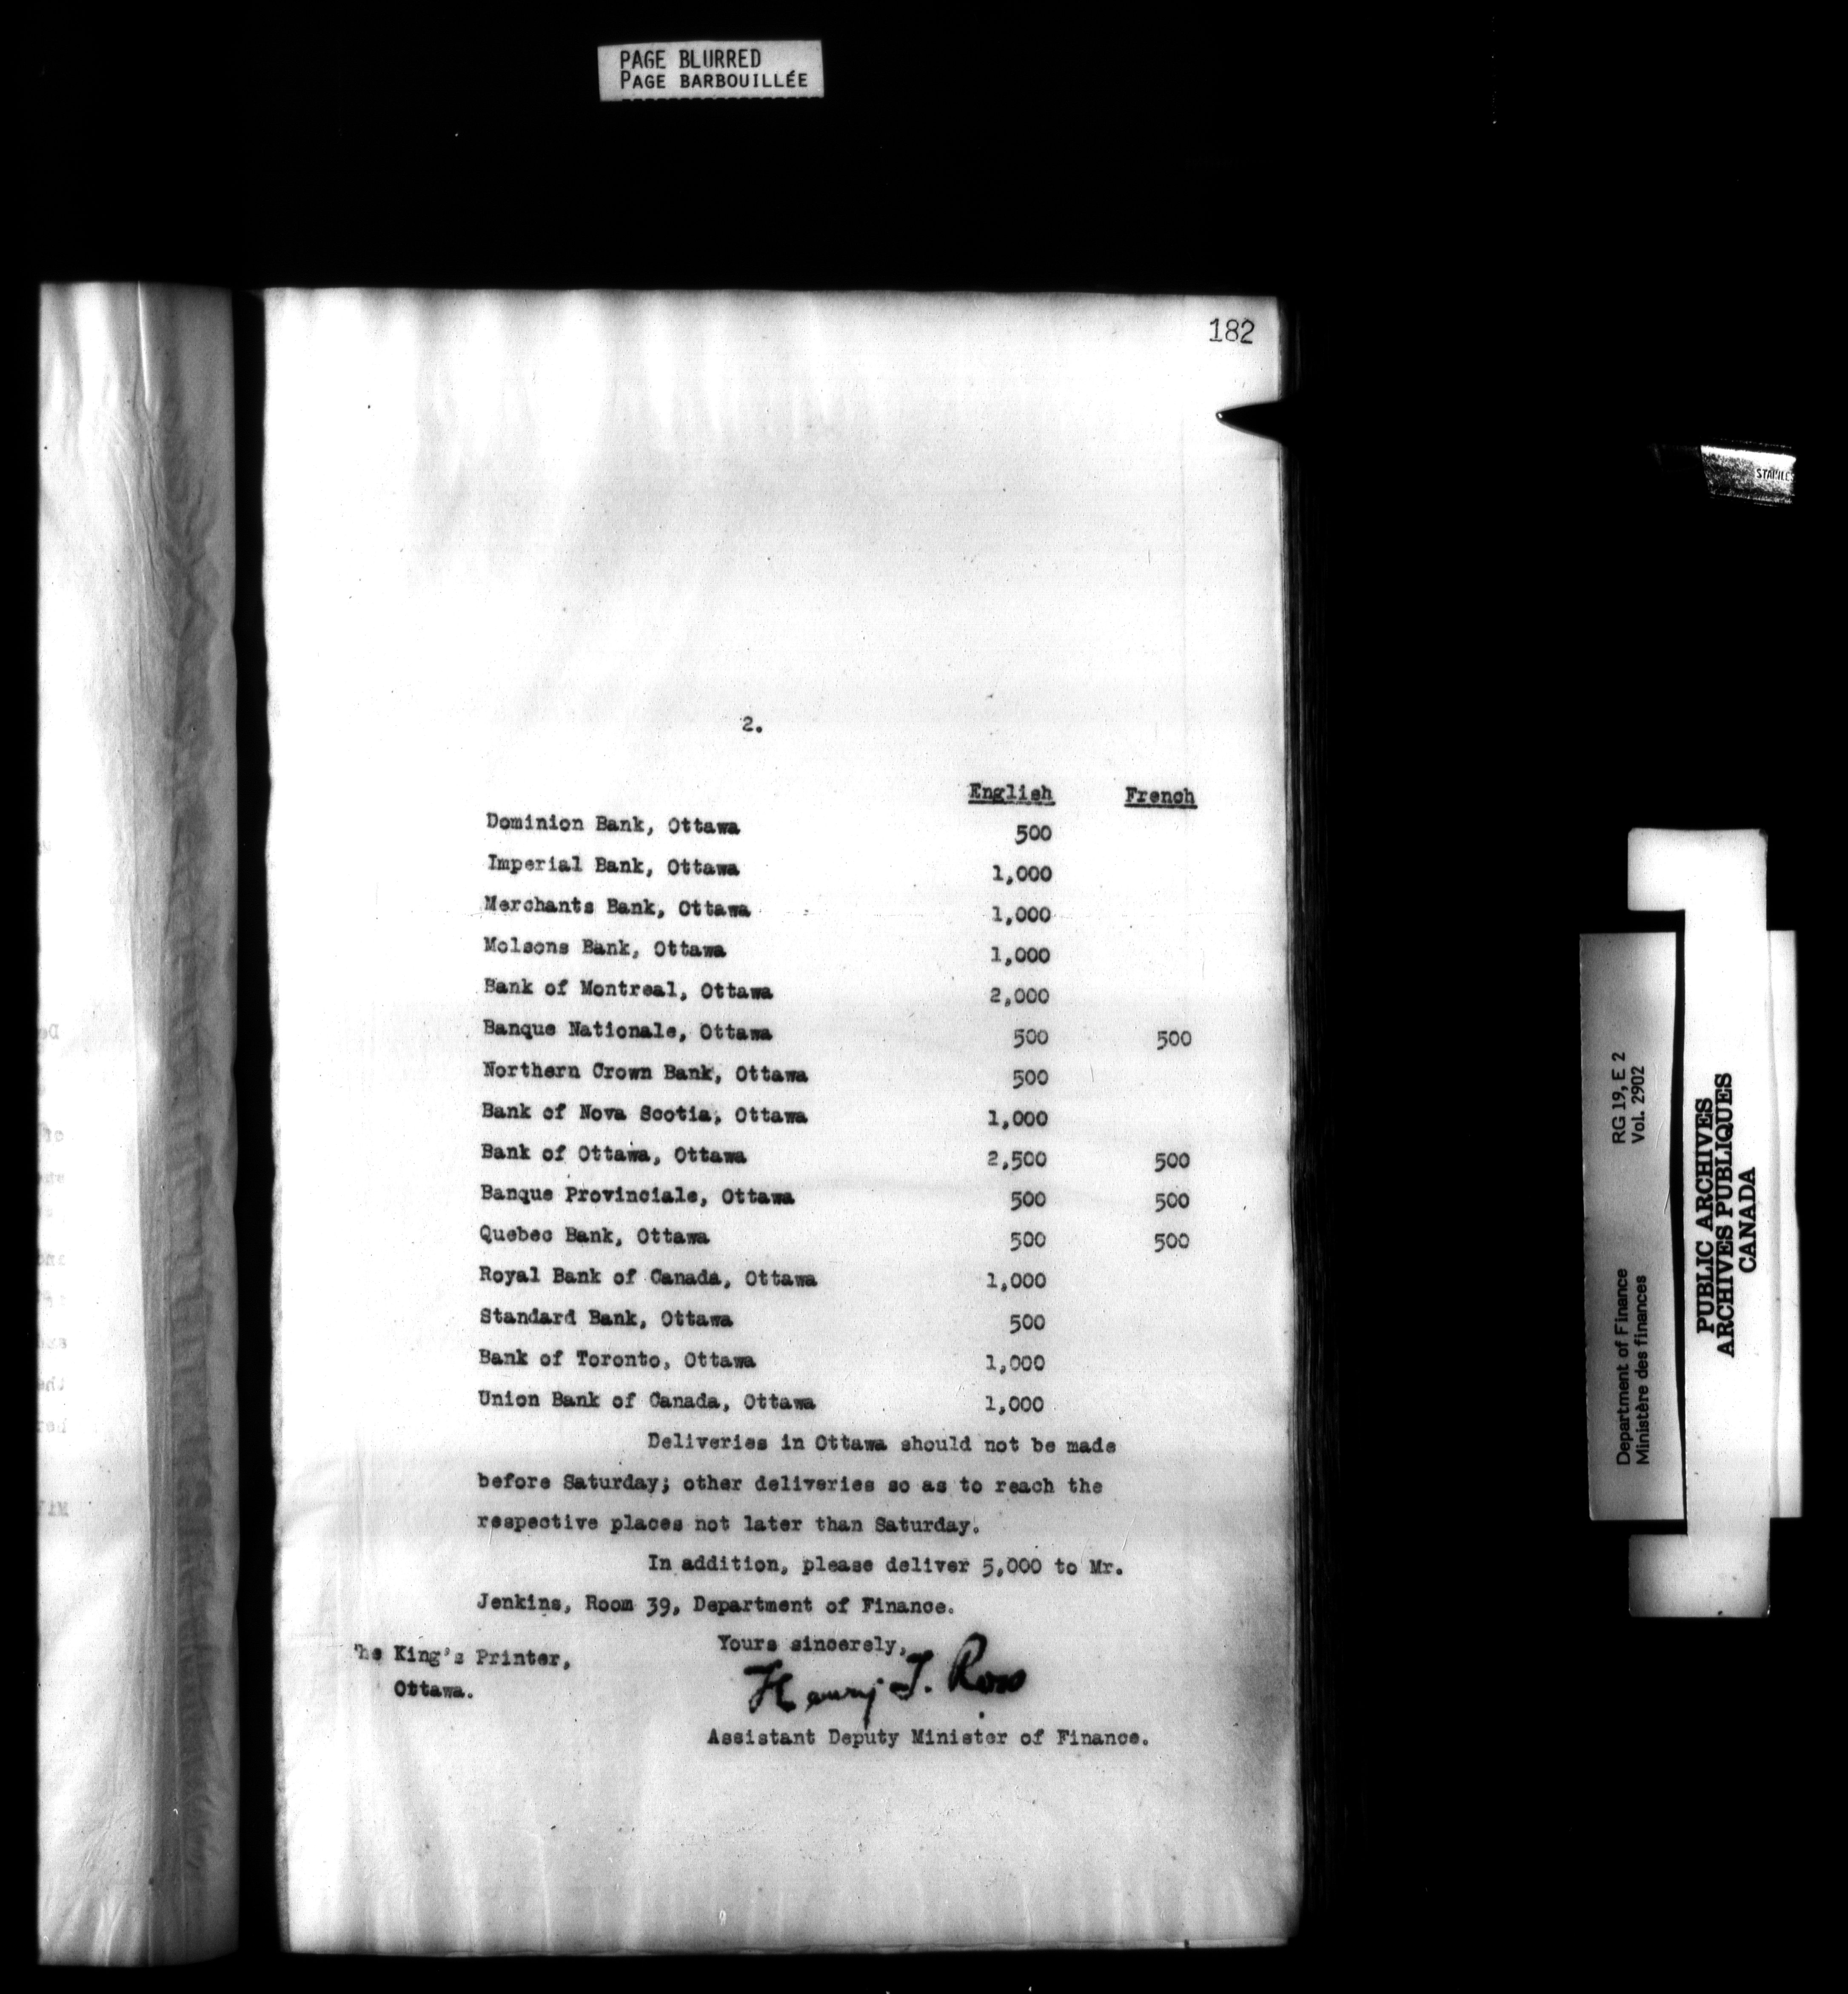 PAGE BLURRED
PAGE BARBOUILLÉE
182
2.
English French
Dominion Bank, Ottawa 500
Imperial Bank, Ottawa 1,000
Merchants Bank, Ottawa 1,000
Molsons Bank, Ottawa 1,000
Bank of Montreal, Ottawa 2,000
Banque Nationale, Ottawa 500 500
Northern Crown Bank, Ottawa 500
Bank of Nova Scotia, Ottawa 1,000
Bank of Ottawa, Ottawa 2,500 500
Banque Provinciale, Ottawa 500 500
Quebec Bank, Ottawa 500 500
Royal Bank of Canada, Ottawa 1,000
Standard Bank, Ottawa 500
Bank of Toronto, Ottawa 1,000
Union Bank of Canada, Ottawa 1,000
Deliveries in Ottawa should not be made
before Saturday; other deliveries so as to reach the
respective places not later than Saturday.
In addition, please deliver 5,000 to Mr.
Jenkins, Room 39, Department of Finance.
Yours sincerely,
he King's Printer,
Ottawa.
Henry T. Ross
Assistant Deputy Minister of Finance.
Department of Finance RG 19, E. 2
Ministère des finances Vol. 2902
PUBLIC ARCHIVES
ARCHIVES PUBLIQUES
CANADA